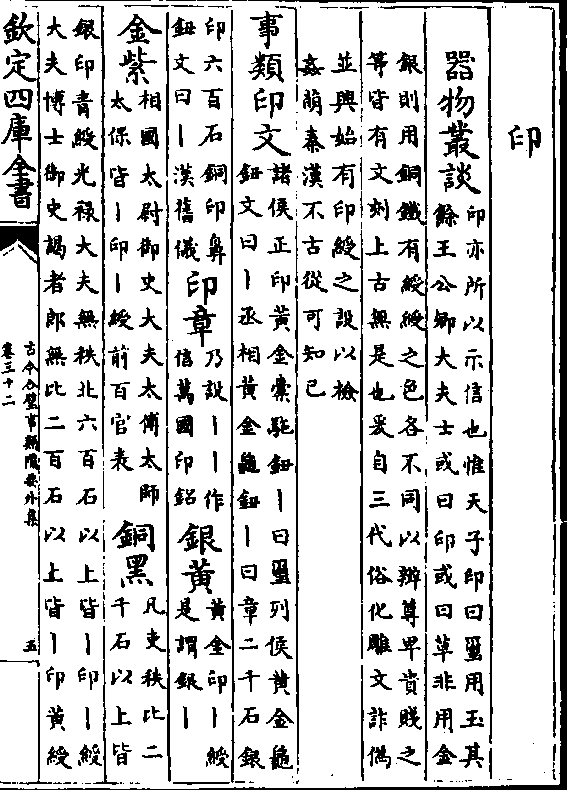 印
器物叢談印亦所以示信也惟天子印曰璽用玉其
餘王公卿大夫士或曰印或曰章非用金
銀則用銅鐵有綬綬之色各不同以辨尊卑貴賤之
等皆有文刻上古無是也爰自三代俗化雕文詐偽
並興始有印綬之設以檢
姦萌秦漢不古從可知已
事類印文諸侯正印黃金橐駞鈕丨曰璽列侯黃金龜
鈕文曰丨丞相黃金龜鈕丨曰章二千石銀
印六百石銅印鼻
鈕文曰丨漢舊儀
印章乃設丨丨作
信萬國印銘
銀黃黃金印丨綬
是謂銀丨
金紫相國太尉御史大夫太傅太師
太保皆丨印丨綬前百官表
銅黑凡吏秩比二
千石以上皆
銀印青綬光祿大夫無秩比六百石以上皆丨印丨綬
大夫博士御史謁者郎無比二百石以上皆丨印黃綬
欽定四庫全書
古今合璧事類備要外集
卷三十二
五